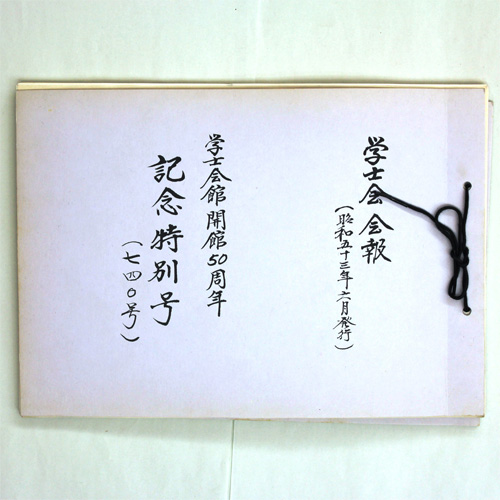 学士会会報
(昭和五十三年六月発行)
学士会館開館50周年
記念特別号
(七四〇号)